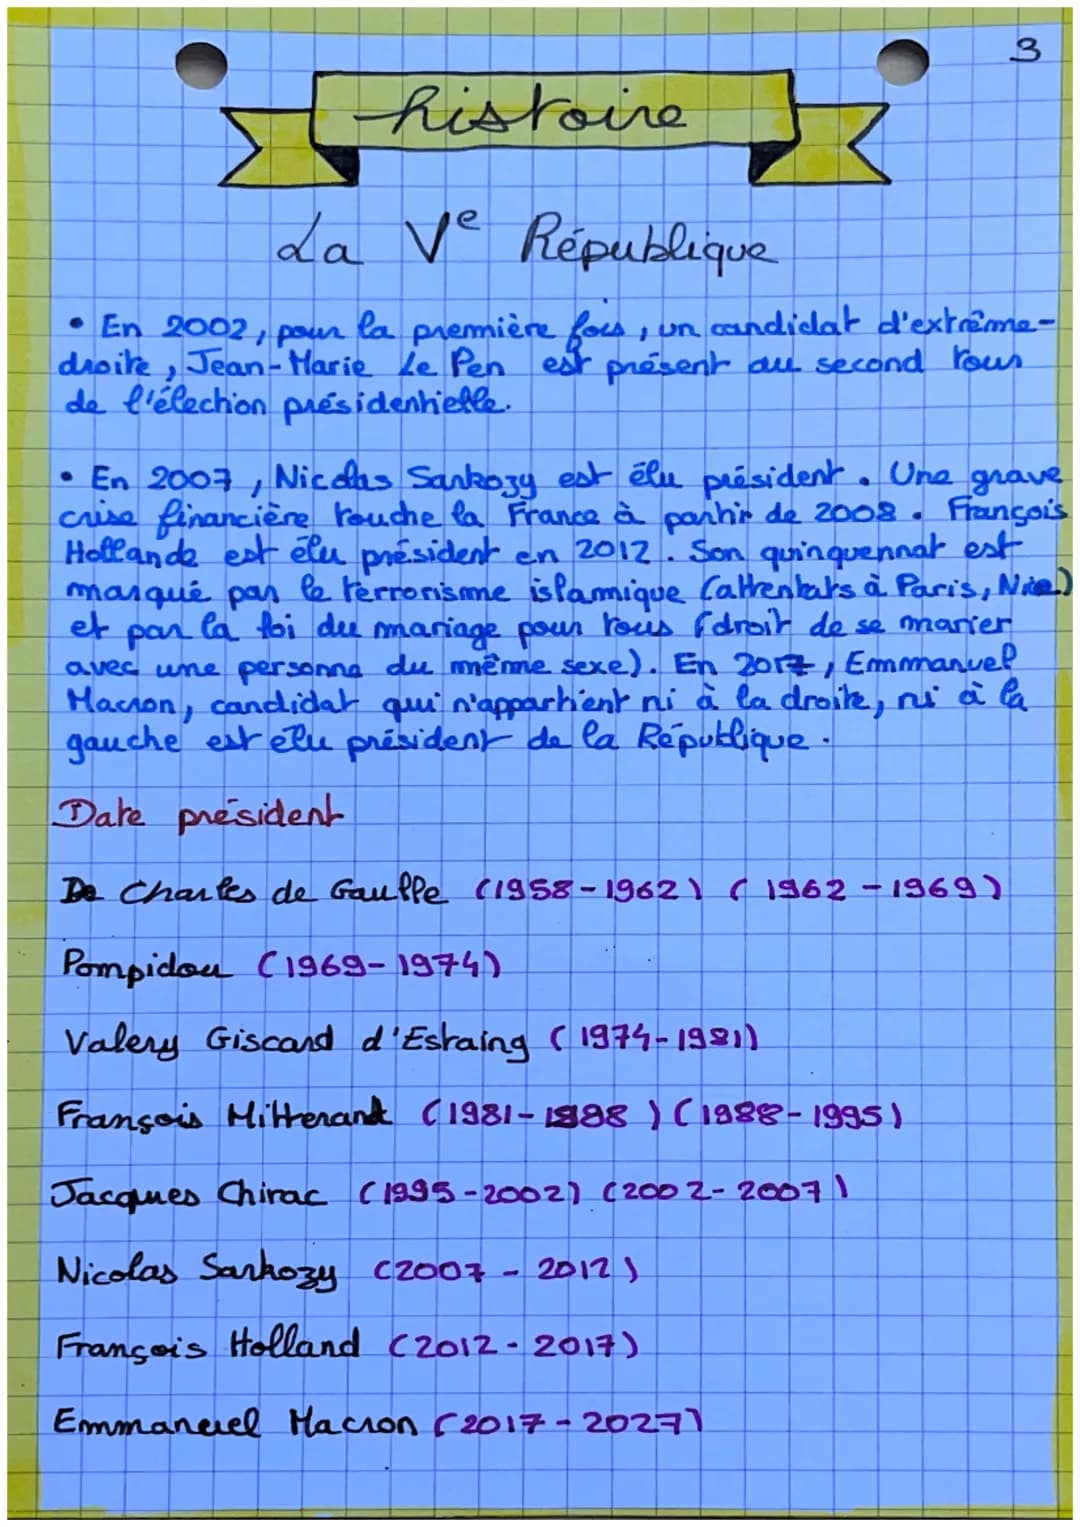 3
histoire
La Ve République
• En 2002, pour la première fois, un candidat d'extrême-
droite, Jean-Marie Le Pen est présent au second tour
de l'élection présidentielle.
• En 2007, Nicolas Sarkozy est élu président. Une grave
crise financière touche la France à partir de 2008. François
Hollande est élu président en 2012. Son quinquennat est
marqué par le terrorisme islamique (attentats à Paris, Nice)
et par la loi du mariage pour tous (droit de se marier
avec une personne du même sexe). En 2017, Emmanuel
Macron, candidat qui n'appartient ni à la droite, ni à la
gauche est élu président de la République.
Date président
De Charles de Gaulle (1958-1962) (1962-1969)
Pompidou (1969-1974)
Valery Giscard d'Estaing (1974-1981)
François Mitterand (1981-1988) (1988-1995)
Jacques Chirac (1995-2002) (2002-2007)
Nicolas Sarkozy (2007-2012)
François Holland (2012-2017)
Emmanuel Macron (2017-2027)